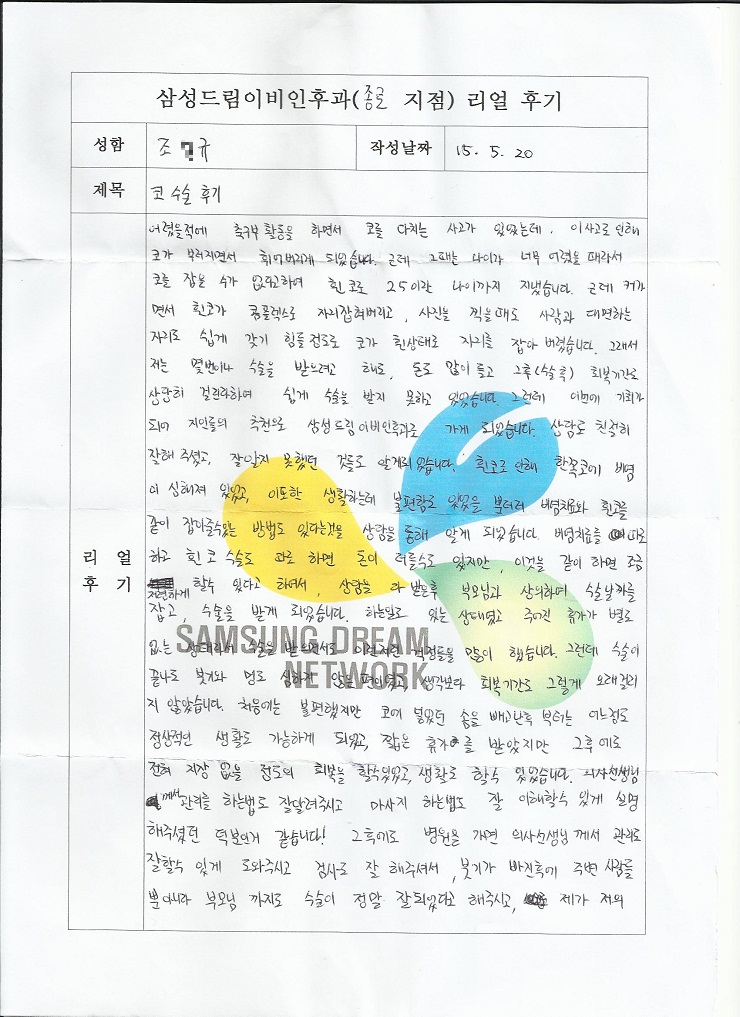 삼성드림이비인후과(종로 지점) 리얼 후기
성함 조 규 작성날짜 15. 5. 20
제목 코 수술 후기
어렸을적에 축구부 활동을 하면서 코를 다치는 사고가 있었는데. 이사고로 인해
코가 부러지면서 휘어버리게 되었습니다. 근데 그때는 나이가 너무 어렸을 때라서
코를 잡을 수가 없다고하여 휜 코로 25이란 나이까지 지냈습니다. 근데 커가
면서 휜코가 콤플렉스로 자리잡혀버리고, 사진을 찍을때도 사람과 대면하는
자리도 쉽게 갖기 힘들 전도로 코가 휜상태로 자리를 잡아 버렸습니다. 그래서
저는 몇번이나 수술을 받으려고 해도, 돈도 많이 들고 그후(수술후) 회복기간도
상당히 걸린다하여 쉽게 수술을 받지 못하고 있었습니다. 그런데 이번에 기회가
되어 지인들의 추천으로 삼성드림이비인후과로 가게 되었습니다. 상담도 친절히
잘해 주셨고, 잘알지 못했던 것들도 알게되었습니다. 휜코로 인해 한쪽코에 비염
이 심해져 있었고, 이또한 생활하는데 불편함도 있었을 뿐더러 비염치료와 휜코를
같이 잡아줄수있는 방법도 있다는것을 상담을 통해 알게 되었습니다. 비염치료를 따로
하고 휜 코 수술도 따로 하면 돈이 더들수도 있지만, 이것을 같이 하면 조금
저렴하게 할수 있다고 하여서, 상담을 다 받은후 부모님과 상의하여 수술날짜를
잡고, 수술을 받게 되었습니다. 하는일도 있는 상태였고 주어진 휴가가 별로
없는 상태라서 수술을 받으면서도 이런저런 걱정들을 많이 했습니다. 그런데 수술이
끝나도 붓기와 멍도 심하지 않은 편이였고, 생각보다 회복기간도 그렇게 오래걸리
지 않았습니다. 처음에는 불편했지만 코에 넣었던 솜을 빼고난후 부터는 어느정도
정상적인 생활도 가능하게 되었고, 짧은 휴가를 받았지만 그후에도
전혀 지장 없을 전도의 회복을 할수있었고, 생활도 할수 있었습니다. 의사선생님
께서 관리를 하는법도 잘알려주시고 마사지 하는법도 잘 이해할수 있게 설명
해주셨던 덕분인거 같습니다! 그후에도 병원을 가면 의사선생님 께서 관리도
잘할수 있게 도와주시고 검사도 잘 해주셔서, 붓기가 빠진후에 주변 사람들
뿐아니라 부모님 까지도 수술이 정말 잘되었다고 해주시고, 제가 저의
리 얼
후 기
SAMSUNG DREAM
NETWORK